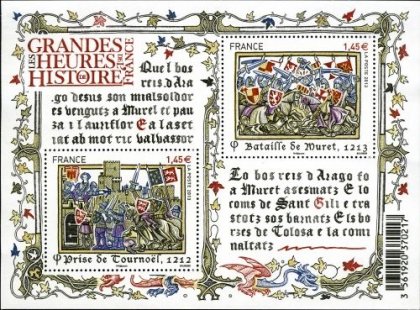 LES GRANDES
HEURES DE
L'HISTOIRE DE FRANCE
Quel bos
reis d'Arago
go desus son mialsoldor
es vengutz a Muret el pau
za i l'auriflor E a la set
iat ab mot ric valvassor
FRANCE
1,45€
LA POSTE 2013
φ Bataille de Muret, 1213
FRANCE
1,45€
LA POSTE 2013
φ Prise de Tournoël, 1212
Lo bos reis d'Arago fo
a Muret asesmatz E lo
coms de Sant Gili e tra
stotz sos barnatz Els bor
zes de Tolosa e la com
naltatz
3 561920 370271